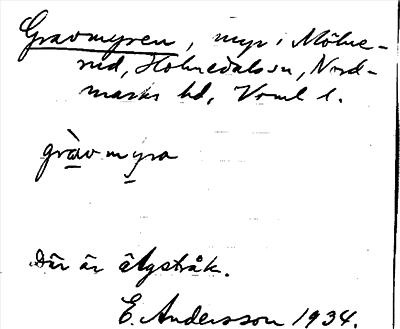 Gravmyren, myr i Mölne-
rud, Holmedals sn, Nord-
marks hd, Vrml l.
gràvmyra
Där är älgstråk.
E. Andersson 1934.